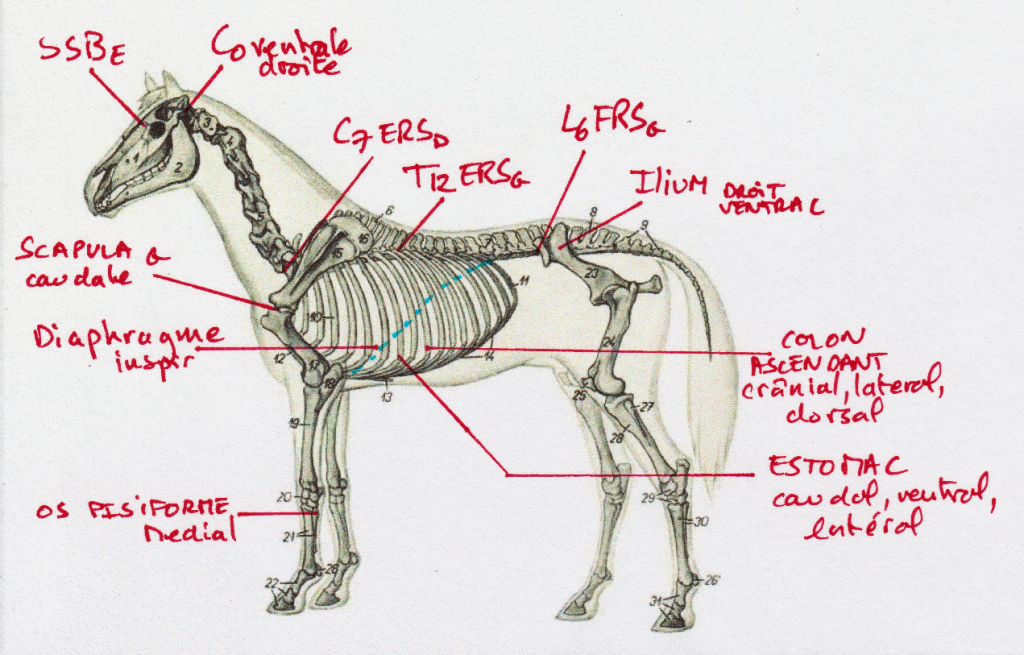 SSB E
C0 ventrale
droite
C7 ERS D
T12 ERS G
L6 FRS G
Ilium DROIT
VENTRAL
SCAPULA G
caudale
Diaphragme
inspir
COLON
ASCENDANT
crânial, latéral,
dorsal
ESTOMAC
caudal, ventral,
latéral
OS PISIFORME
Medial
2
6
8
9
16
15
23
11
10
12
17
18
14
13
24
25
27
28
19
20
21
22
26
29
30
26
31